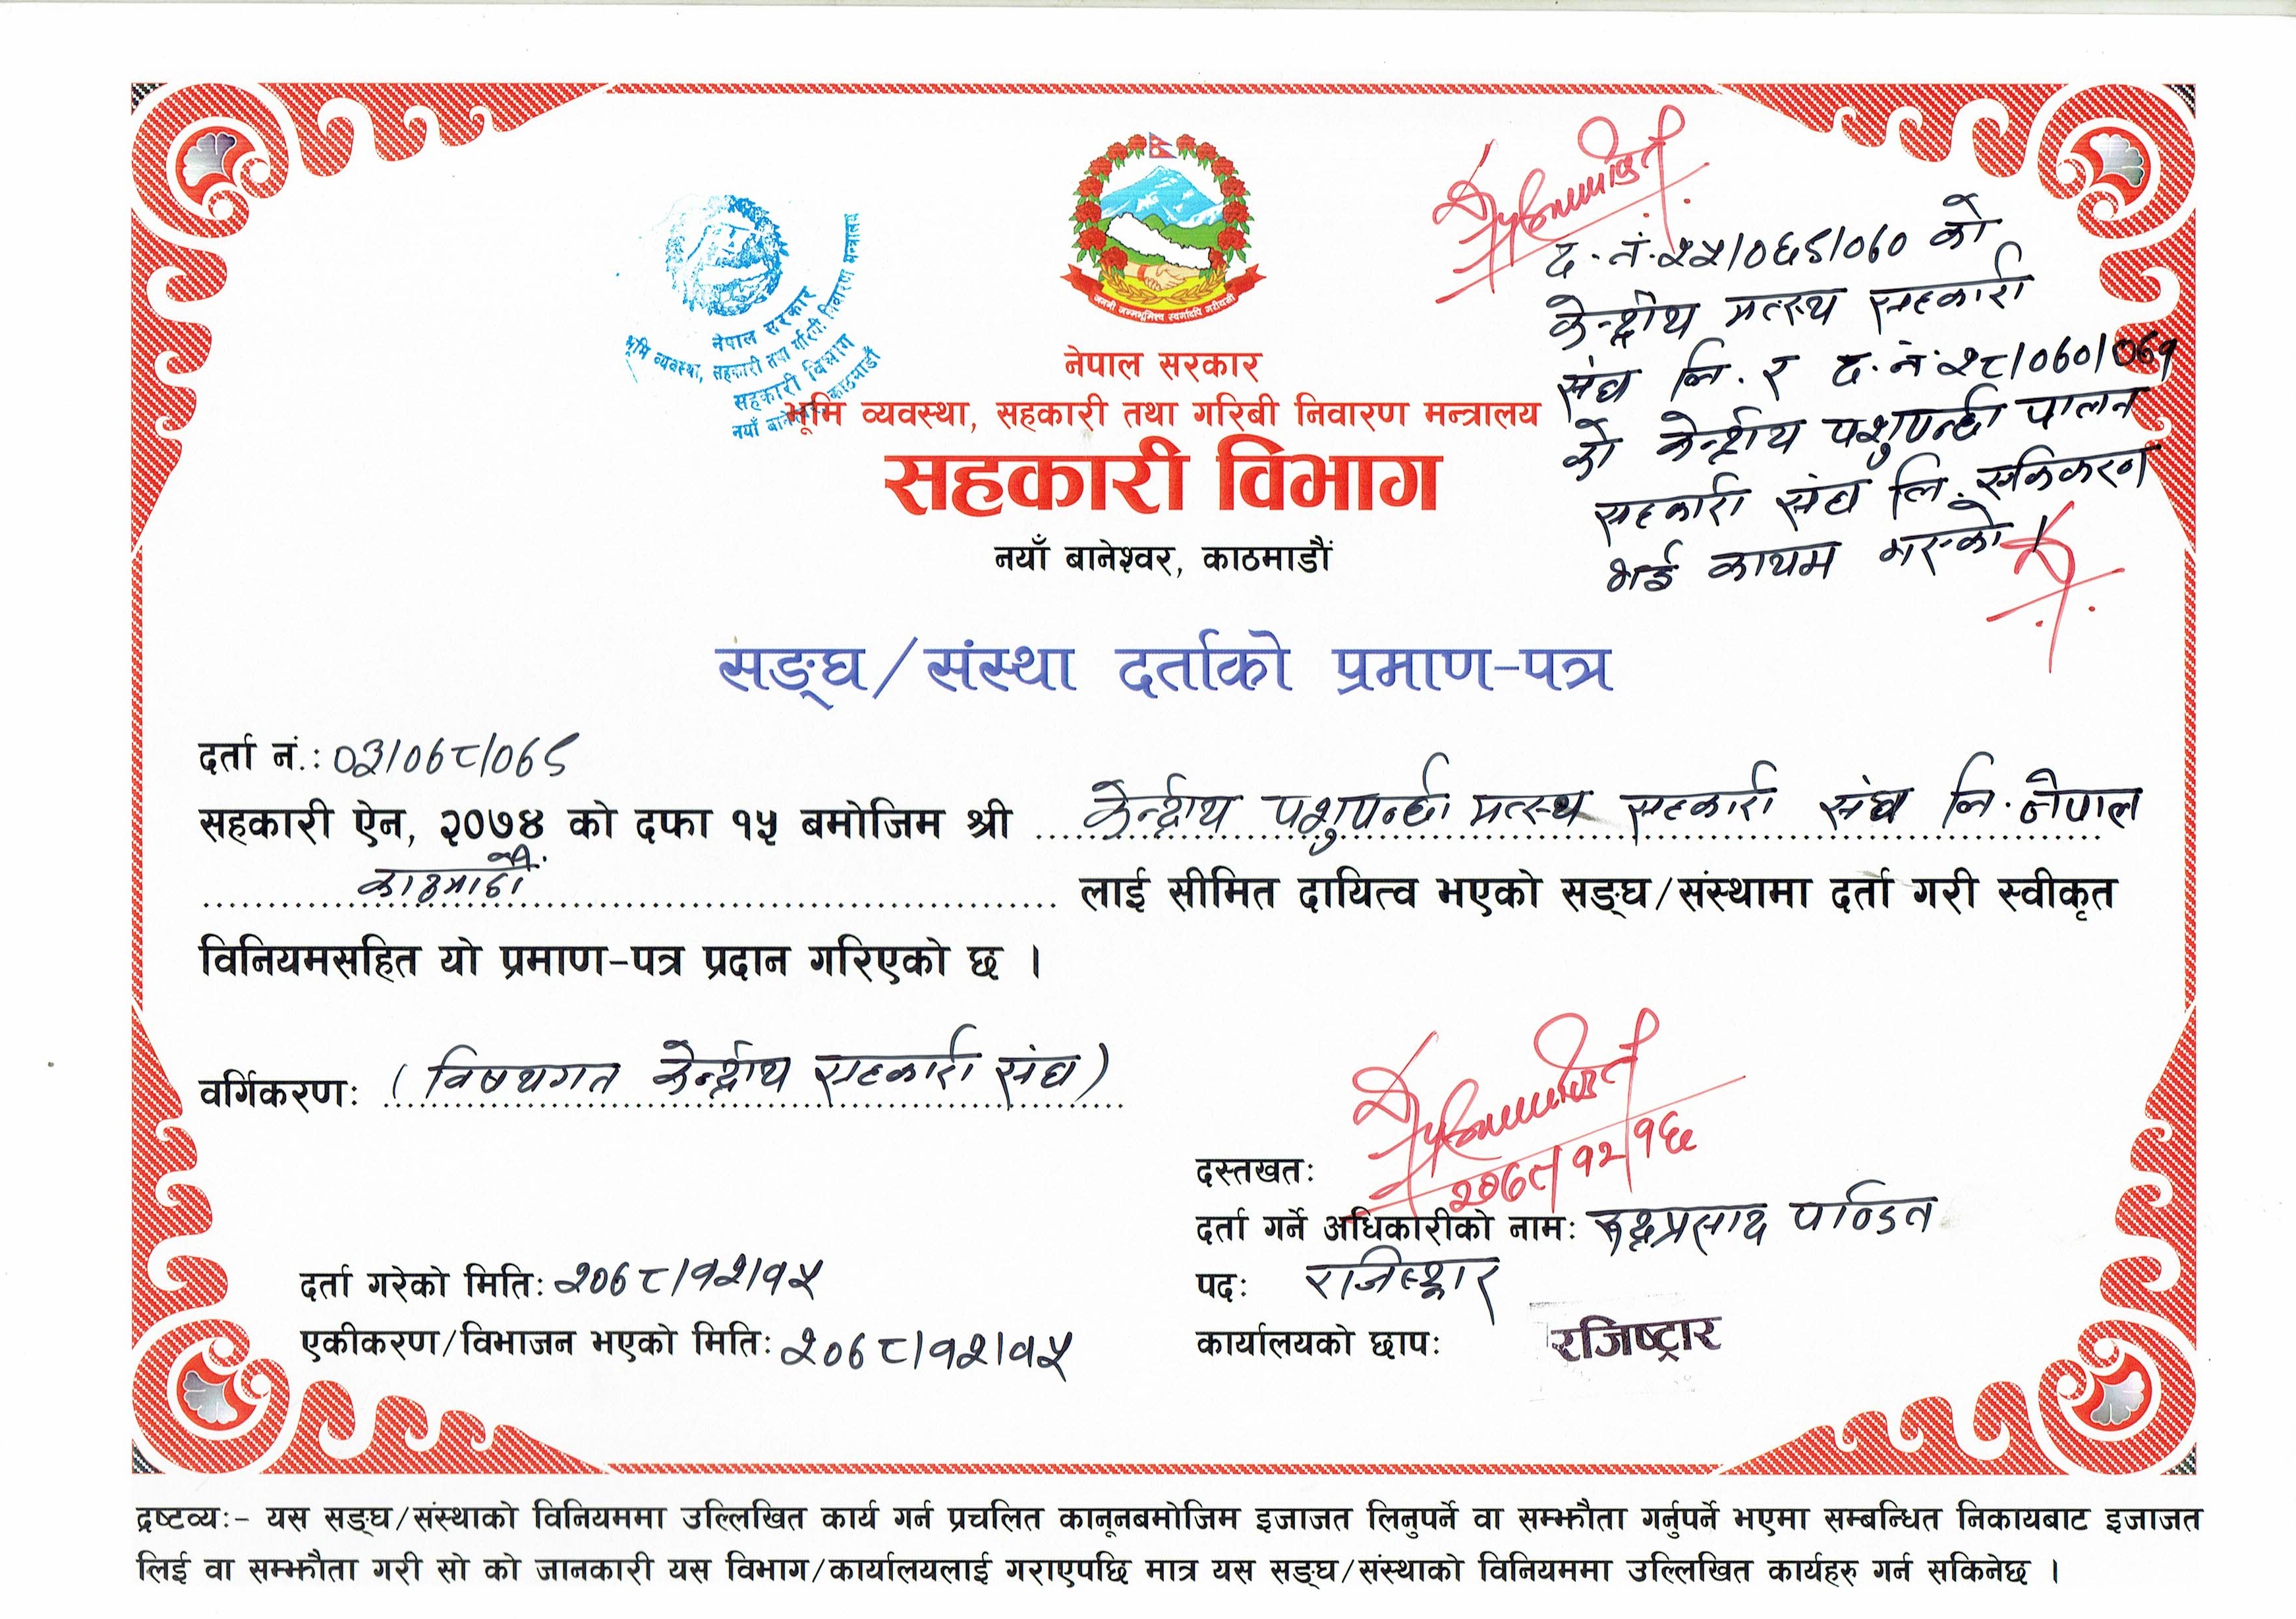 जननी जन्मभूमिश्च स्वर्गादपि गरीयसी
नेपाल सरकार
भूमि व्यवस्था, सहकारी तथा गरिबी निवारण मन्त्रालय
सहकारी विभाग
नयाँ बानेश्वर, काठमाडौं
नेपाल सरकार
भूमि व्यवस्था, सहकारी तथा गरिबी निवारण मन्त्रालय
सहकारी विभाग
नयाँ बानेश्वर, काठमाडौं
द.नं.२५/०६९/०७० को
केन्द्रीय मत्स्य सहकारी
संघ लि. र द.नं.२८/०७०/०७१
को केन्द्रीय पशुपन्छी पालन
सहकारी संघ लि. एकिकरण
भई कायम भएको ।
सङ्घ/संस्था दर्ताको प्रमाण-पत्र
दर्ता नं.: ०३/०७८/०७९
सहकारी ऐन, २०७४ को दफा १५ बमोजिम श्री केन्द्रीय पशुपन्छी मत्स्य सहकारी संघ लि. नेपाल
काठमाडौं लाई सीमित दायित्व भएको सङ्घ/संस्थामा दर्ता गरी स्वीकृत
विनियमसहित यो प्रमाण-पत्र प्रदान गरिएको छ ।
वर्गिकरण: (विषयगत केन्द्रीय सहकारी संघ)
दस्तखत:
२०७८/१२/१६
दर्ता गर्ने अधिकारीको नाम: रूद्रप्रसाद पण्डित
दर्ता गरेको मिति: २०७८/१२/१५
पद: रजिष्ट्रार
एकीकरण/विभाजन भएको मिति: २०७८/१२/१५
कार्यालयको छाप: रजिष्ट्रार
द्रष्टव्य:- यस सङ्घ/संस्थाको विनियममा उल्लिखित कार्य गर्न प्रचलित कानूनबमोजिम इजाजत लिनुपर्ने वा सम्झौता गर्नुपर्ने भएमा सम्बन्धित निकायबाट इजाजत
लिई वा सम्झौता गरी सो को जानकारी यस विभाग/कार्यालयलाई गराएपछि मात्र यस सङ्घ/संस्थाको विनियममा उल्लिखित कार्यहरु गर्न सकिनेछ ।